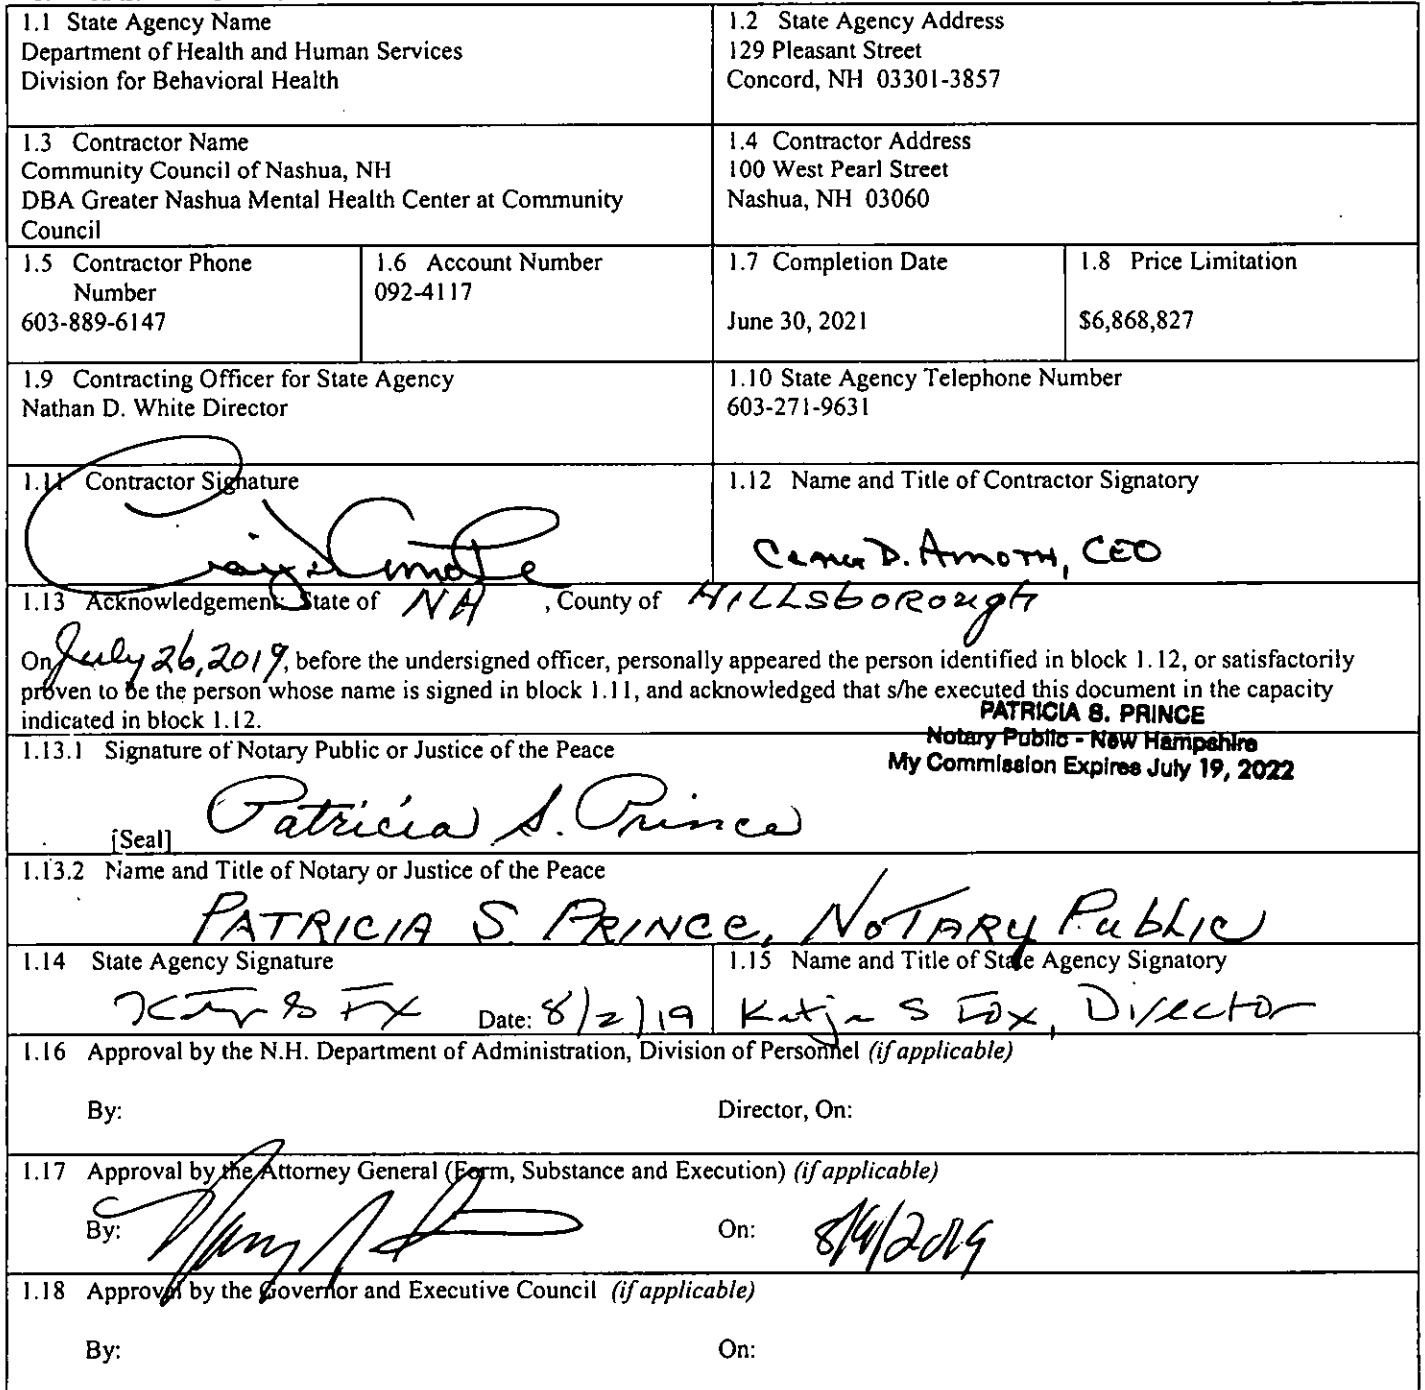 1.1 State Agency Name
Department of Health and Human Services
Division for Behavioral Health
1.2 State Agency Address
129 Pleasant Street
Concord, NH 03301-3857
1.3 Contractor Name
Community Council of Nashua, NH
DBA Greater Nashua Mental Health Center at Community
Council
1.4 Contractor Address
100 West Pearl Street
Nashua, NH 03060
1.5 Contractor Phone
Number
603-889-6147
1.6 Account Number
092-4117
1.7 Completion Date
June 30, 2021
1.8 Price Limitation
$6,868,827
1.9 Contracting Officer for State Agency
Nathan D. White Director
1.10 State Agency Telephone Number
603-271-9631
1.11 Contractor Signature
1.12 Name and Title of Contractor Signatory
D. Amoth, CEO
1.13 Acknowledgement: State of NH , County of Hillsborough
On July 26, 2019, before the undersigned officer, personally appeared the person identified in block 1.12, or satisfactorily
proven to be the person whose name is signed in block 1.11, and acknowledged that s/he executed this document in the capacity
indicated in block 1.12.
PATRICIA S. PRINCE
Notary Public - New Hampshire
My Commission Expires July 19, 2022
1.13.1 Signature of Notary Public or Justice of the Peace
Patricia S. Prince
[Seal]
1.13.2 Name and Title of Notary or Justice of the Peace
PATRICIA S PRINCE, NOTARY Public
1.14 State Agency Signature
Date: 8/2/19
1.15 Name and Title of State Agency Signatory
Katja S Fox, Director
1.16 Approval by the N.H. Department of Administration, Division of Personnel (if applicable)
By:
Director, On:
1.17 Approval by the Attorney General (Form, Substance and Execution) (if applicable)
By:
On:
1.18 Approval by the Governor and Executive Council (if applicable)
By:
On: